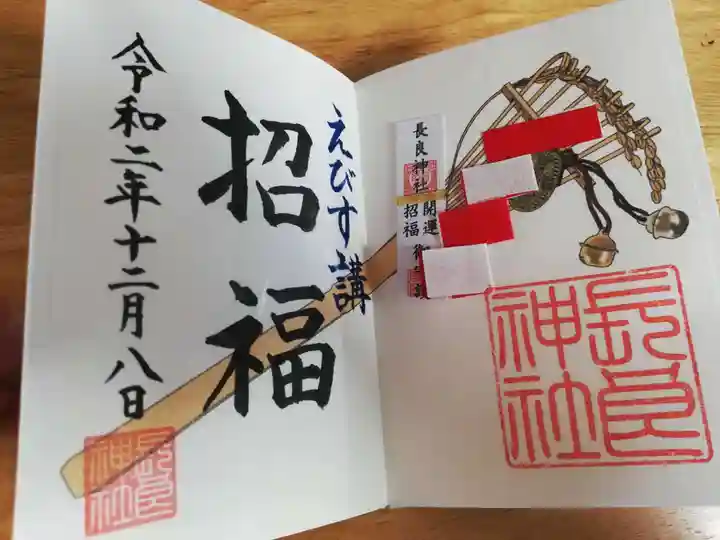 長良神社
長良神社 開運
招福 御
えびす講
招福
令和二年十二月八日
長良神社